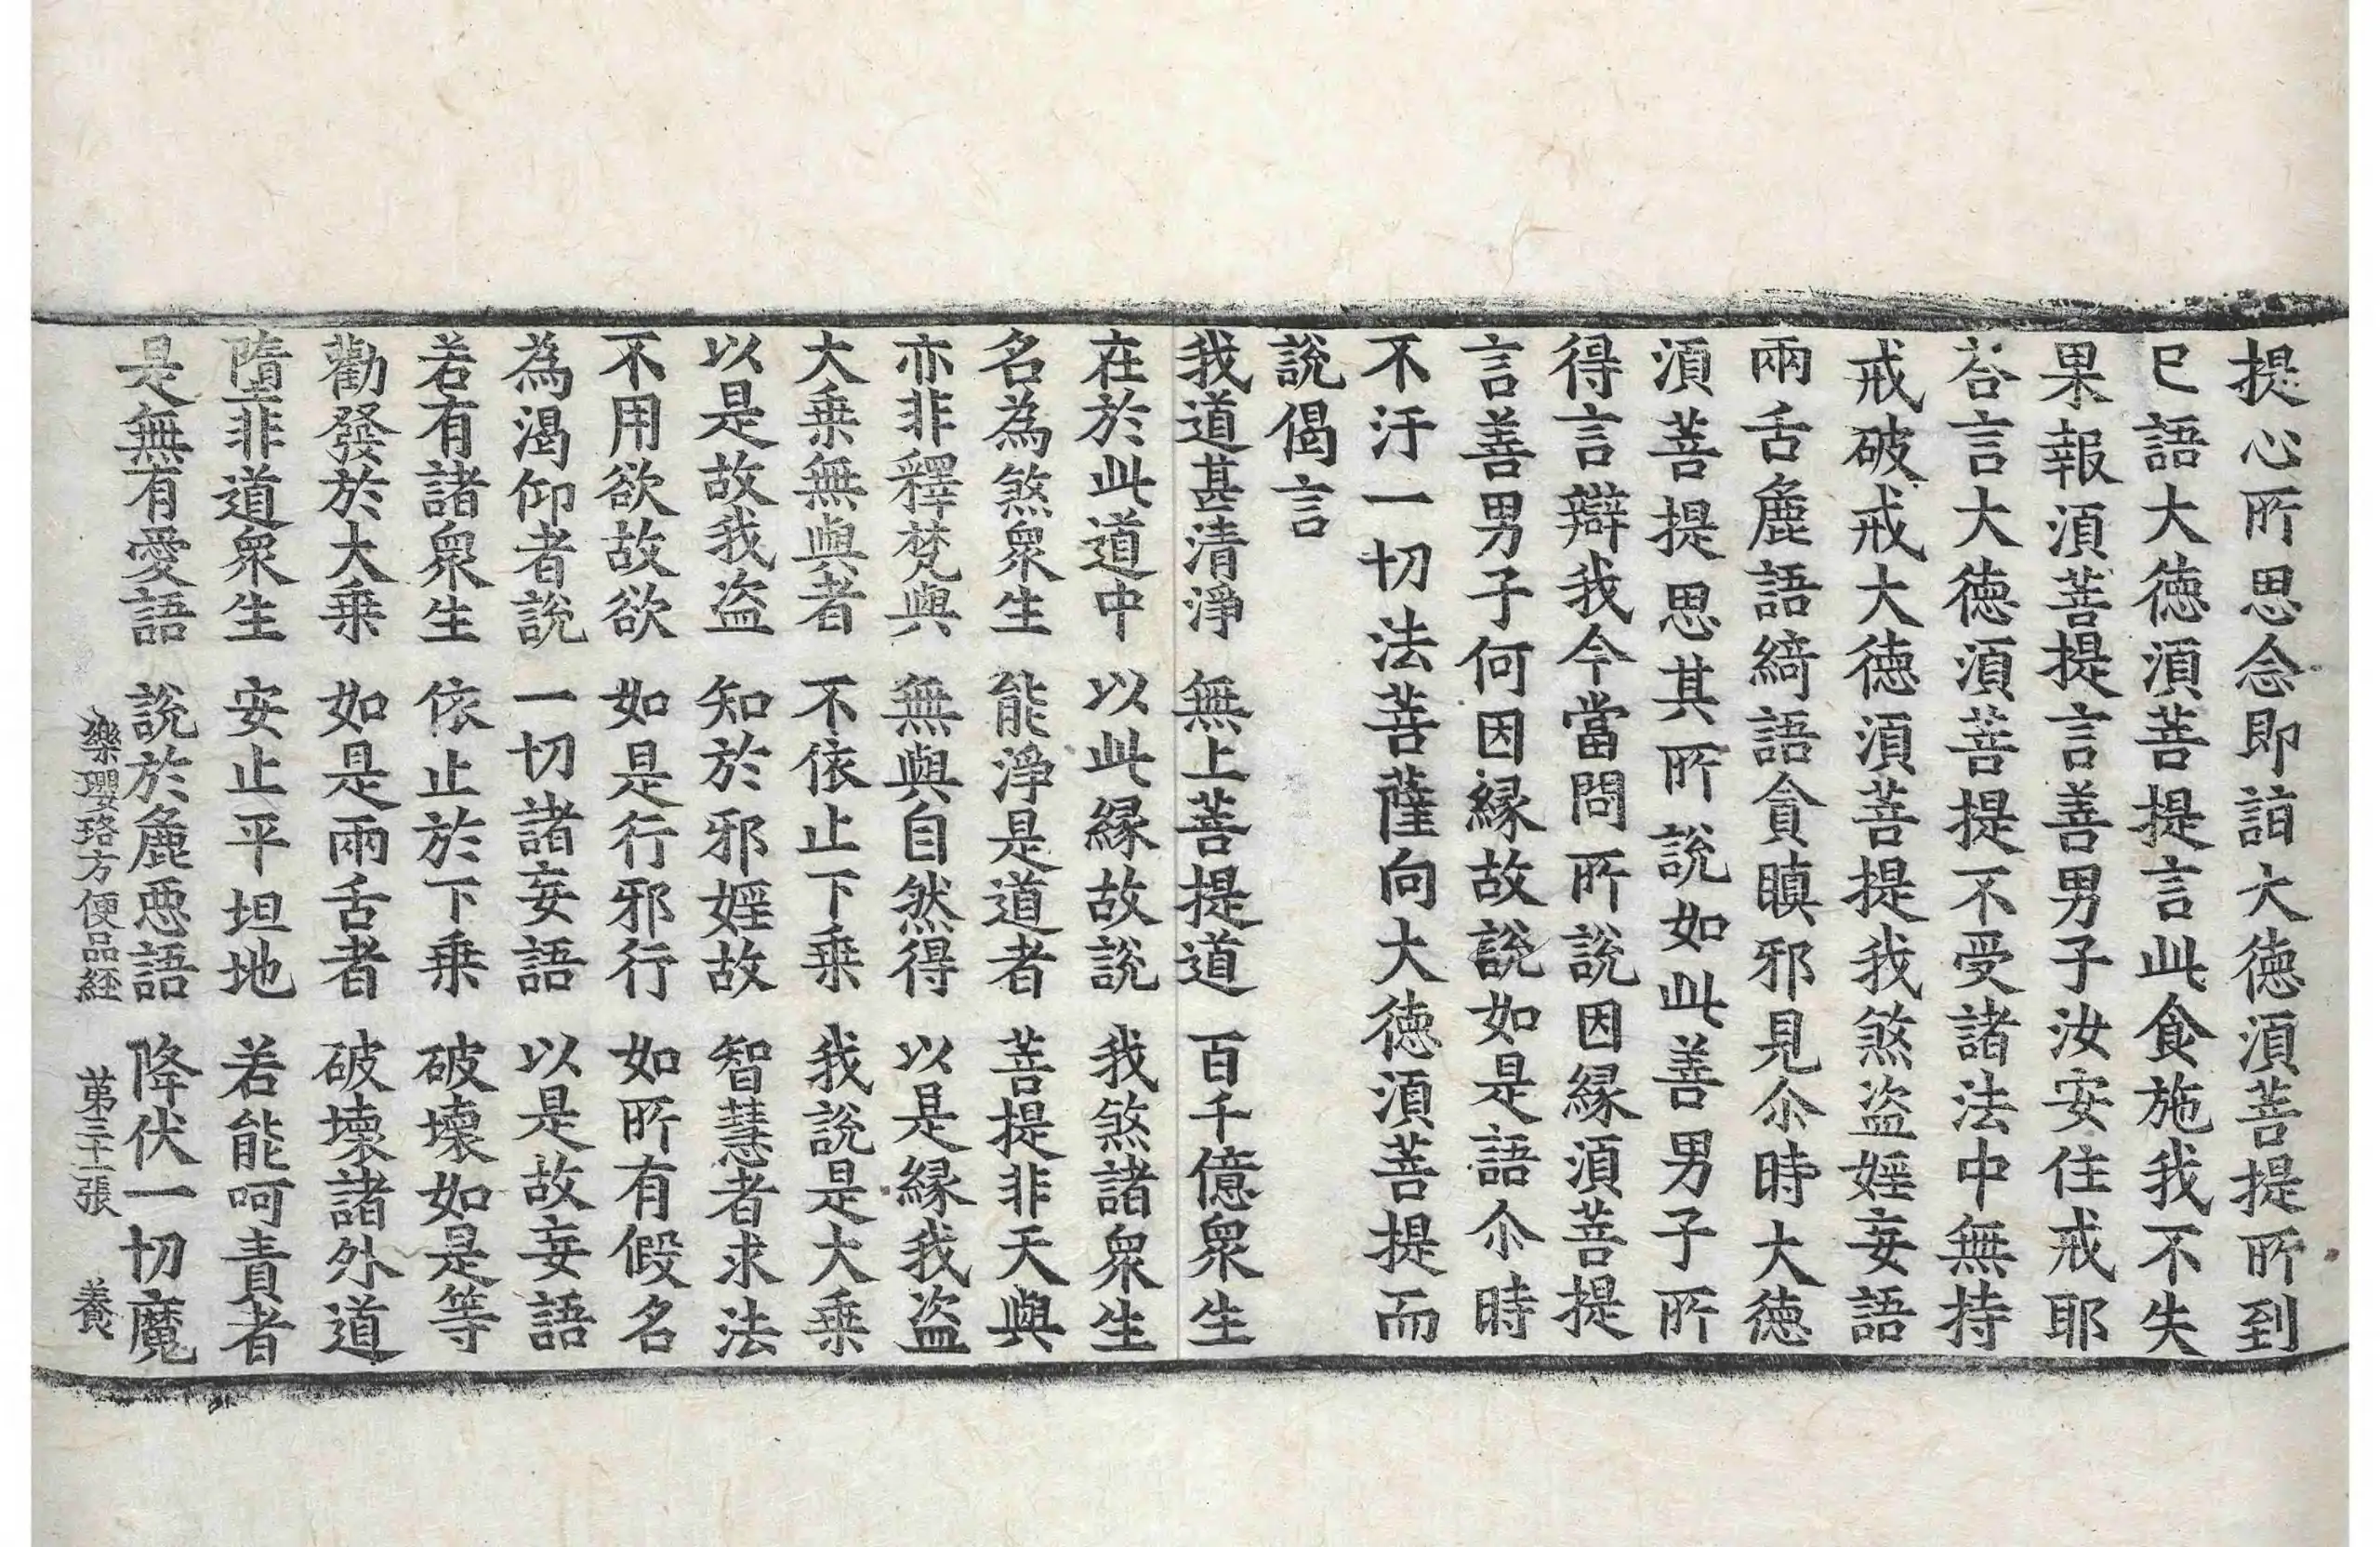 提心所思念即詣大德須菩提所到
已語大德須菩提言此食施我不失
果報須菩提言善男子汝安住戒耶
荅言大德須菩提不受諸法中無持
戒破戒大德須菩提我煞盜婬妄語
兩舌麁語綺語貪瞋邪見尒時大德
須菩提思其所說如此善男子所
得言辯我今當問所說因縁須菩提
言善男子何因縁故說如是語尒時
不汙一切法菩薩向大德須菩提而
說偈言
我道甚清淨　無上菩提道　百千億衆生
在於此道中　以此縁故說　我煞諸衆生
名為煞衆生　能淨是道者　菩提非天與
亦非釋梵與　無與自然得　以是縁我盜
大乗無與者　不依止下乗　我說是大乗
以是故我盜　知於邪婬故　智慧者求法
不用欲故欲　如是行邪行　如所有假名
為渴仰者說　一切諸妄語　以是故妄語
若有諸衆生　依止於下乗　破壞如是等
勸發於大乗　如是兩舌者　破壞諸外道
墮非道衆生　安止平坦地　若能呵責者
是無有愛語　說於麁惡語　降伏一切魔
樂瓔珞方便品経　第三十二張　養